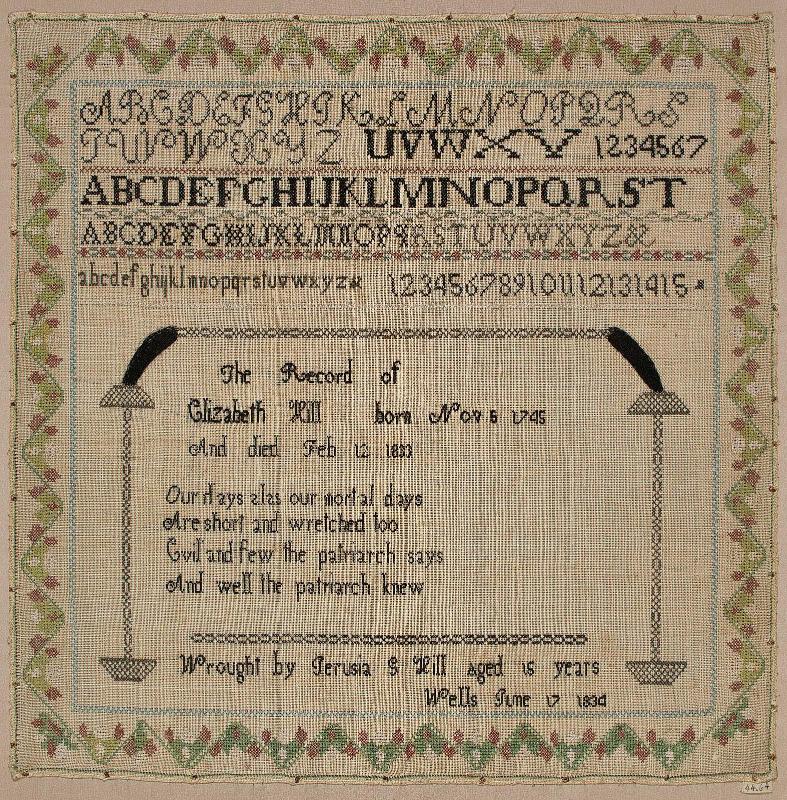 ABCDEFGHIKLMNOPQRS
TUVWXYZ UVWXY 1234567
ABCDEFGHIJKLMNOPQRST
ABCDEFGHIJKLMNOPQRSTUVWXYZ&
abcdefghijklmnopqrstuvwxyz& 123456789101112131415
The Record of
Elizabeth Hill born Nov 5 1745
And died Feb 12 1833
Our days alas our mortal days
Are short and wretched too
Evil and few the patriarch says
And well the patriarch knew
Wrought by Jerusia G Hill aged 15 years
Wells June 17 1834
44.64